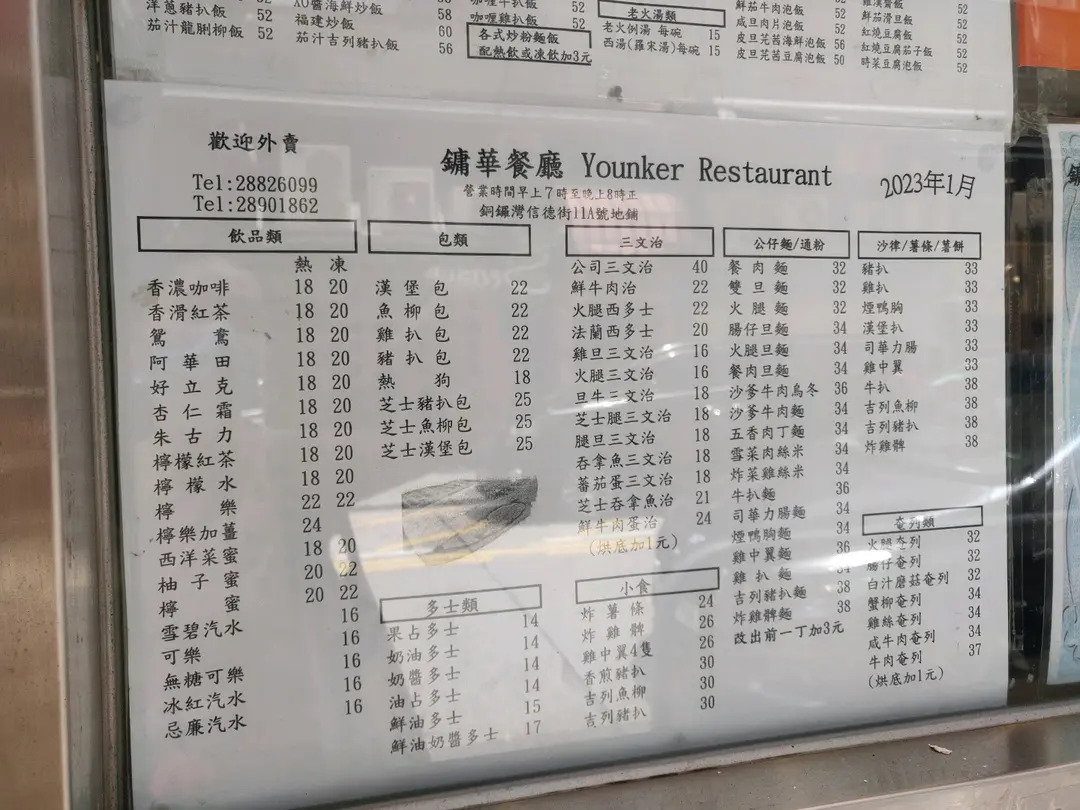 洋蔥豬扒飯 52
茄汁龍脷柳飯 52
XO醬海鮮炒飯 58
福建炒飯 60
茄汁吉列豬扒飯 56
咖喱牛扒飯 52
咖喱雞扒飯 52
各式炒粉麵飯
配熱飲或凍飲加3元
老火湯類
老火例湯 每碗 15
西湯(羅宋湯)每碗 15
鮮茄牛肉泡飯 52
咸旦肉片泡飯 52
皮旦芫茜海鮮泡飯 56
皮旦芫茜豆腐泡飯 50
鮮茄滑旦飯 52
紅燒豆腐飯 52
紅燒豆腐茄子飯 52
時菜豆腐泡飯 52
歡迎外賣
Tel:28826099
Tel:28901862
鏞華餐廳 Younker Restaurant
營業時間早上7時至晚上8時正
銅鑼灣信德街11A號地鋪
2023年1月
飲品類
熱 凍
香濃咖啡 18 20
香滑紅茶 18 20
鴛鴦 18 20
阿華田 18 20
好立克 18 20
杏仁霜 18 20
朱古力 18 20
檸檬紅茶 18 20
檸檬水 18 20
檸樂 22 22
檸樂加薑 24
西洋菜蜜 18 20
柚子蜜 20 22
檸蜜 20 22
雪碧汽水 16
可樂 16
無糖可樂 16
冰紅汽水 16
忌廉汽水 16
包類
漢堡包 22
魚柳包 22
雞扒包 22
豬扒包 22
熱狗 18
芝士豬扒包 25
芝士魚柳包 25
芝士漢堡包 25
多士類
果占多士 14
奶油多士 14
奶醬多士 14
油占多士 14
鮮油多士 15
鮮油奶醬多士 17
三文治
公司三文治 40
鮮牛肉治 22
火腿西多士 22
法蘭西多士 20
雞旦三文治 16
火腿三文治 16
旦牛三文治 18
芝士腿三文治 18
腿旦三文治 18
吞拿魚三文治 18
蕃茄蛋三文治 18
芝士吞拿魚治 21
鮮牛肉蛋治 24
(烘底加1元)
小食
炸薯條 24
炸雞髀 26
雞中翼4隻 26
香煎豬扒 30
吉列魚柳 30
吉列豬扒 30
公仔麵/通粉
餐肉麵 32
雙旦麵 32
火腿麵 32
腸仔旦麵 34
火腿旦麵 34
餐肉旦麵 34
沙爹牛肉烏冬 36
沙爹牛肉麵 34
五香肉丁麵 34
雪菜肉絲米 34
炸菜雞絲米 34
牛扒麵 36
司華力腸麵 34
煙鴨胸麵 34
雞中翼麵 36
雞扒麵 34
吉列豬扒麵 38
炸雞髀麵 38
改出前一丁加3元
沙律/薯條/薯餅
豬扒 33
雞扒 33
煙鴨胸 33
漢堡扒 33
司華力腸 33
雞中翼 33
牛扒 38
吉列魚柳 38
吉列豬扒 38
炸雞髀 38
奄列類
火腿奄列 32
腸仔奄列 32
白汁磨菇奄列 32
蟹柳奄列 34
雞絲奄列 34
咸牛肉奄列 34
牛肉奄列 37
(烘底加1元)